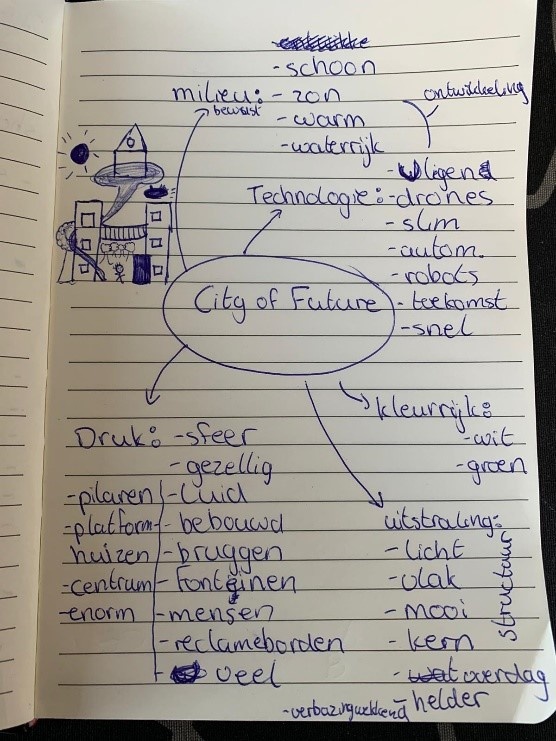 -schoon
milieu: -zon
bewust
-warm
-waterrijk
ontwikkeling
-vliegend
Technologie: -drones
-slim
-autom.
-robots
-toekomst
-snel
City of Future
kleurrijk:
-wit
-groen
Druk: -sfeer
-gezellig
-pilaren -Luid
-platform -bebouwd
huizen -bruggen
-centrum -Fonteinen
-enorm -mensen
-reclameborden
-veel
uitstraling:
-licht
-vlak
-mooi
-kern
structuur
-overdag
-helder
-verbazingwekkend